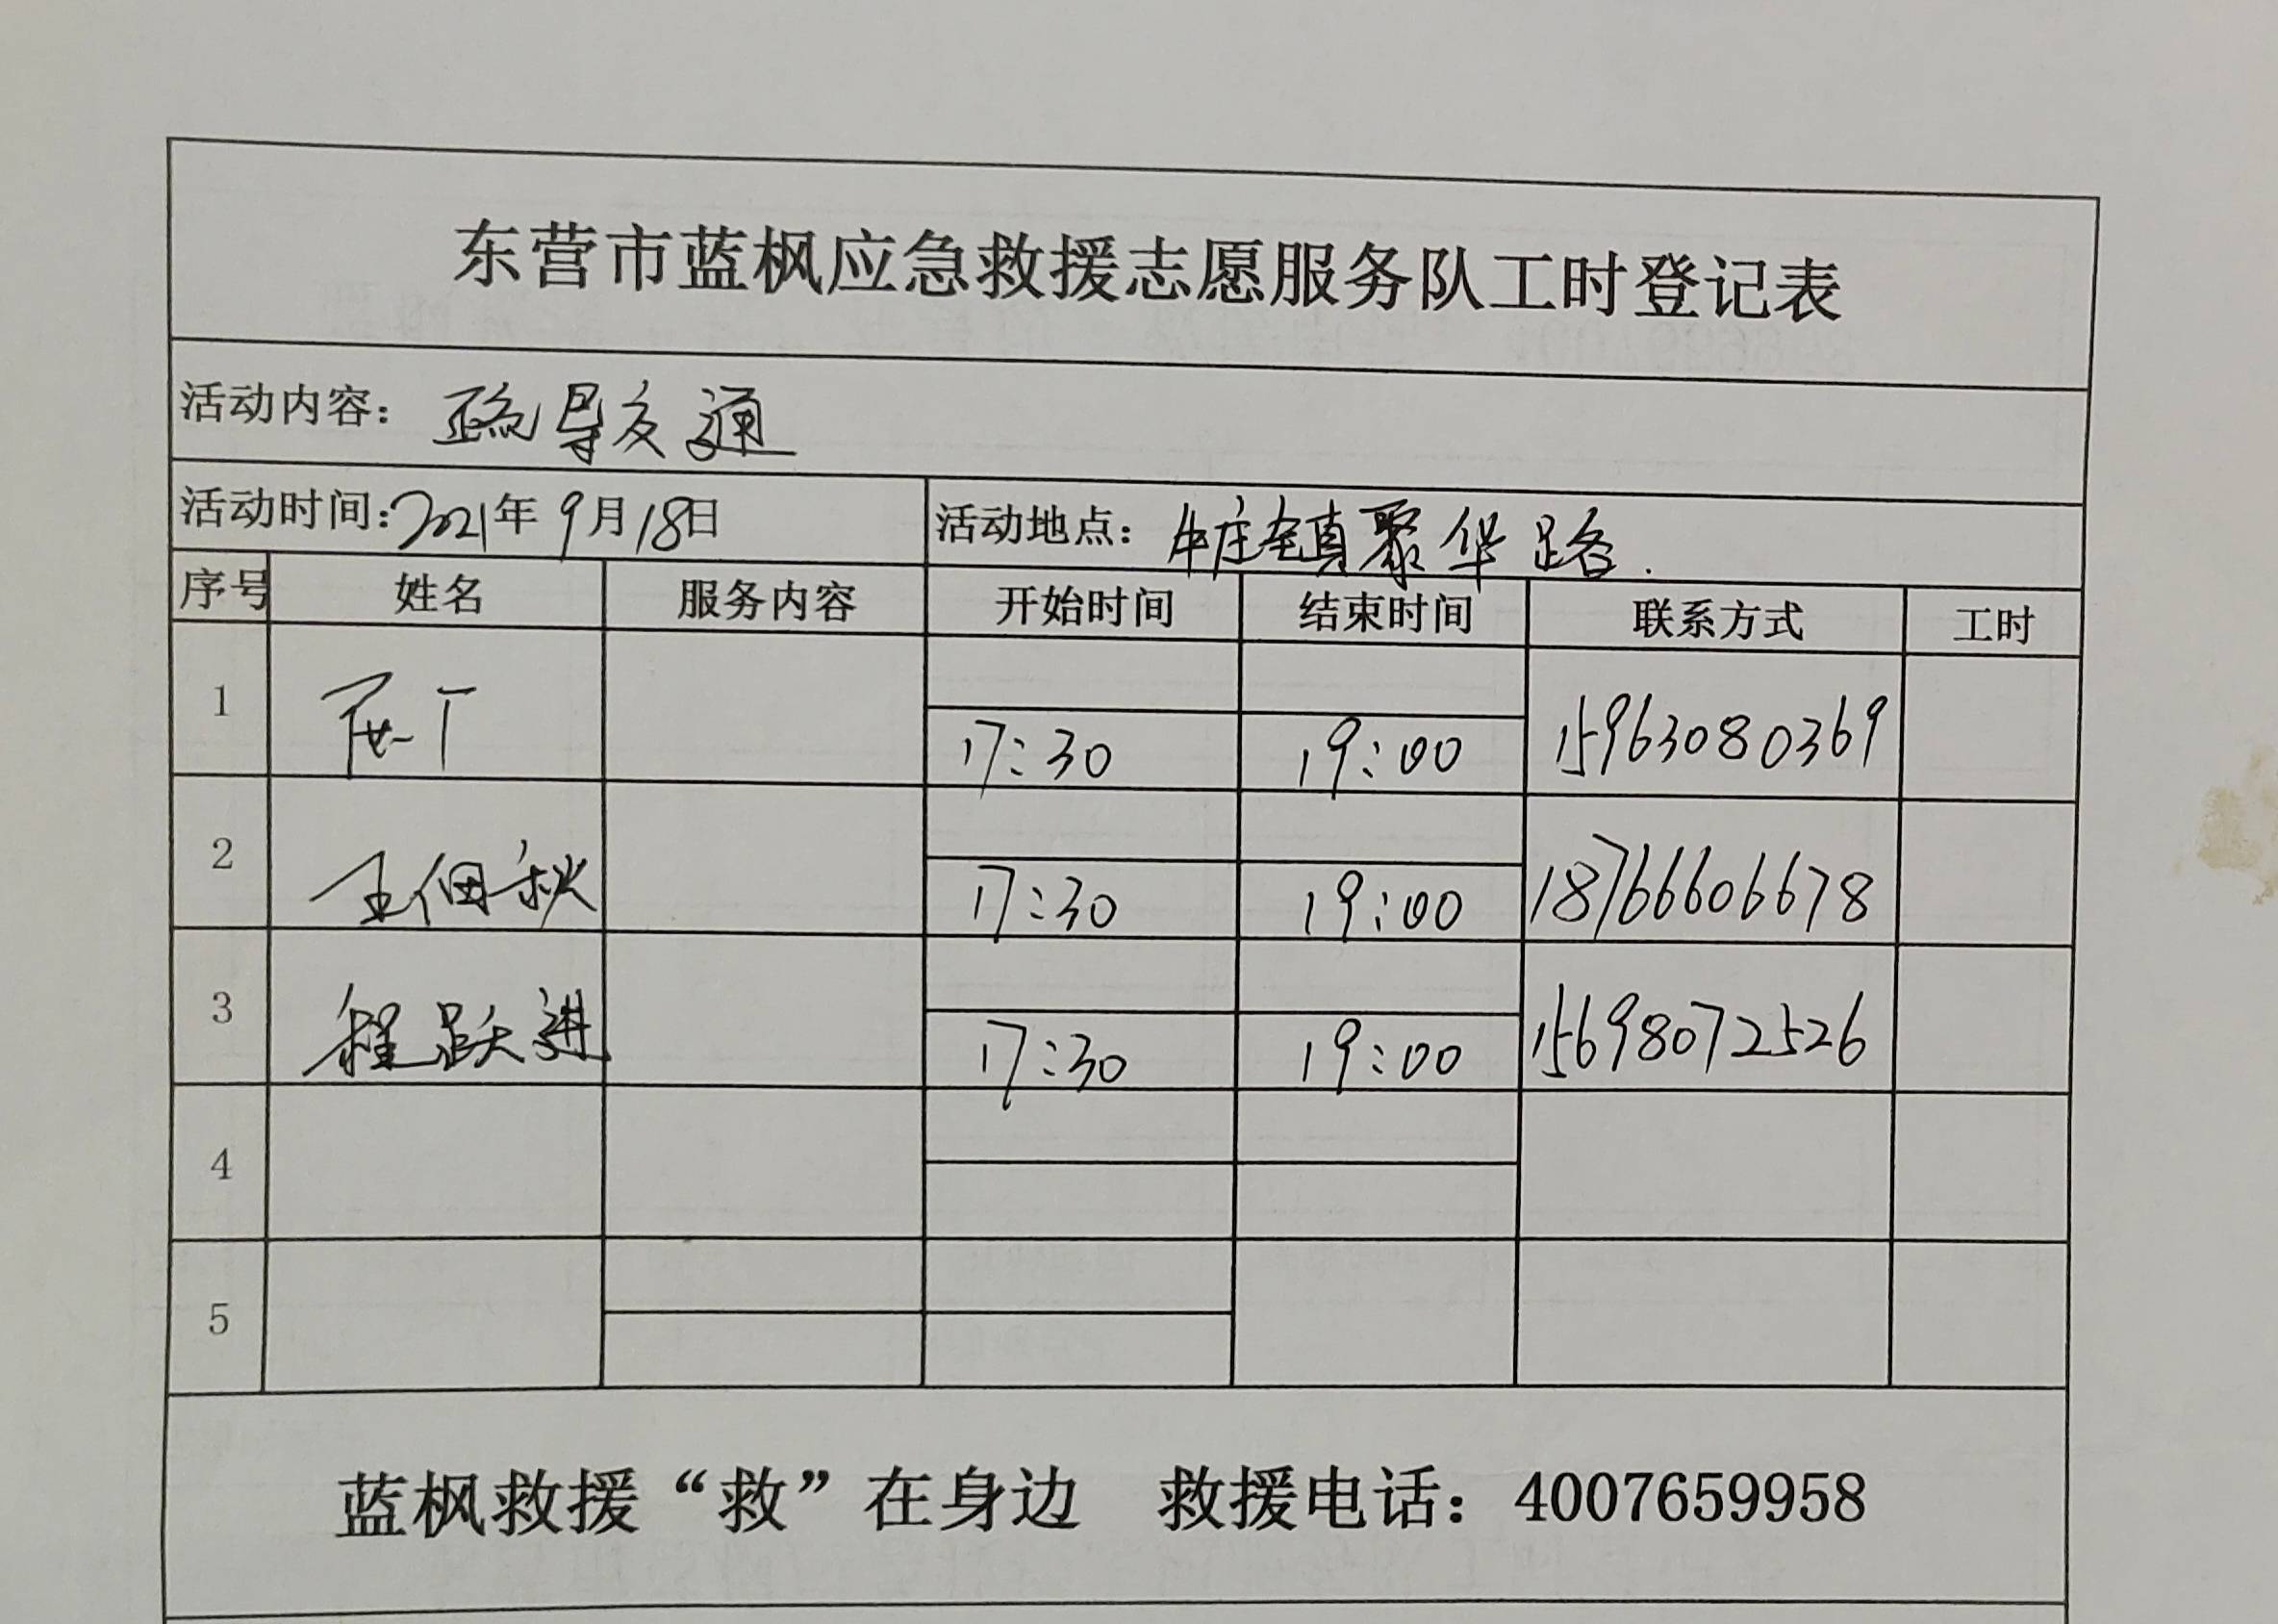 东营市蓝枫应急救援志愿服务队工时登记表
活动内容：疏导交通
活动时间:2021年9月18日 活动地点：牛庄镇聚华路.
序号 姓名 服务内容 开始时间 结束时间 联系方式 工时
1 17:30 19:00 15963080369
2 王佃秋 17:30 19:00 18766606678
3 程跃进 17:30 19:00 15698072526
4
5
蓝枫救援“救”在身边 救援电话：4007659958